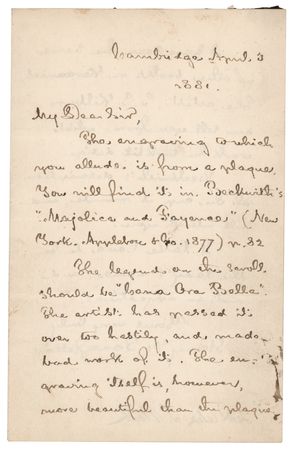 Cambridge April 3
1881.
My Dear Sir,
The engraving to which
you allude is from a plaque.
You will find it in Beckwith's
"Majolica and Fayence" (New
York. Appleton & Co. 1877) p. 82
The legend on the scroll
should be "Cana Ora Bella".
The artist has passed it
over too hastily, and made
bad work of it. The en-
graving itself is, however,
more beautiful than the plaque,